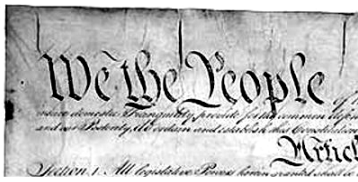 We the People
insure domestic Tranquility, provide for the common defen
and our Posterity, do ordain and establish this Constitution
Articl
Section. 1. All legislative Powers herein granted shall be